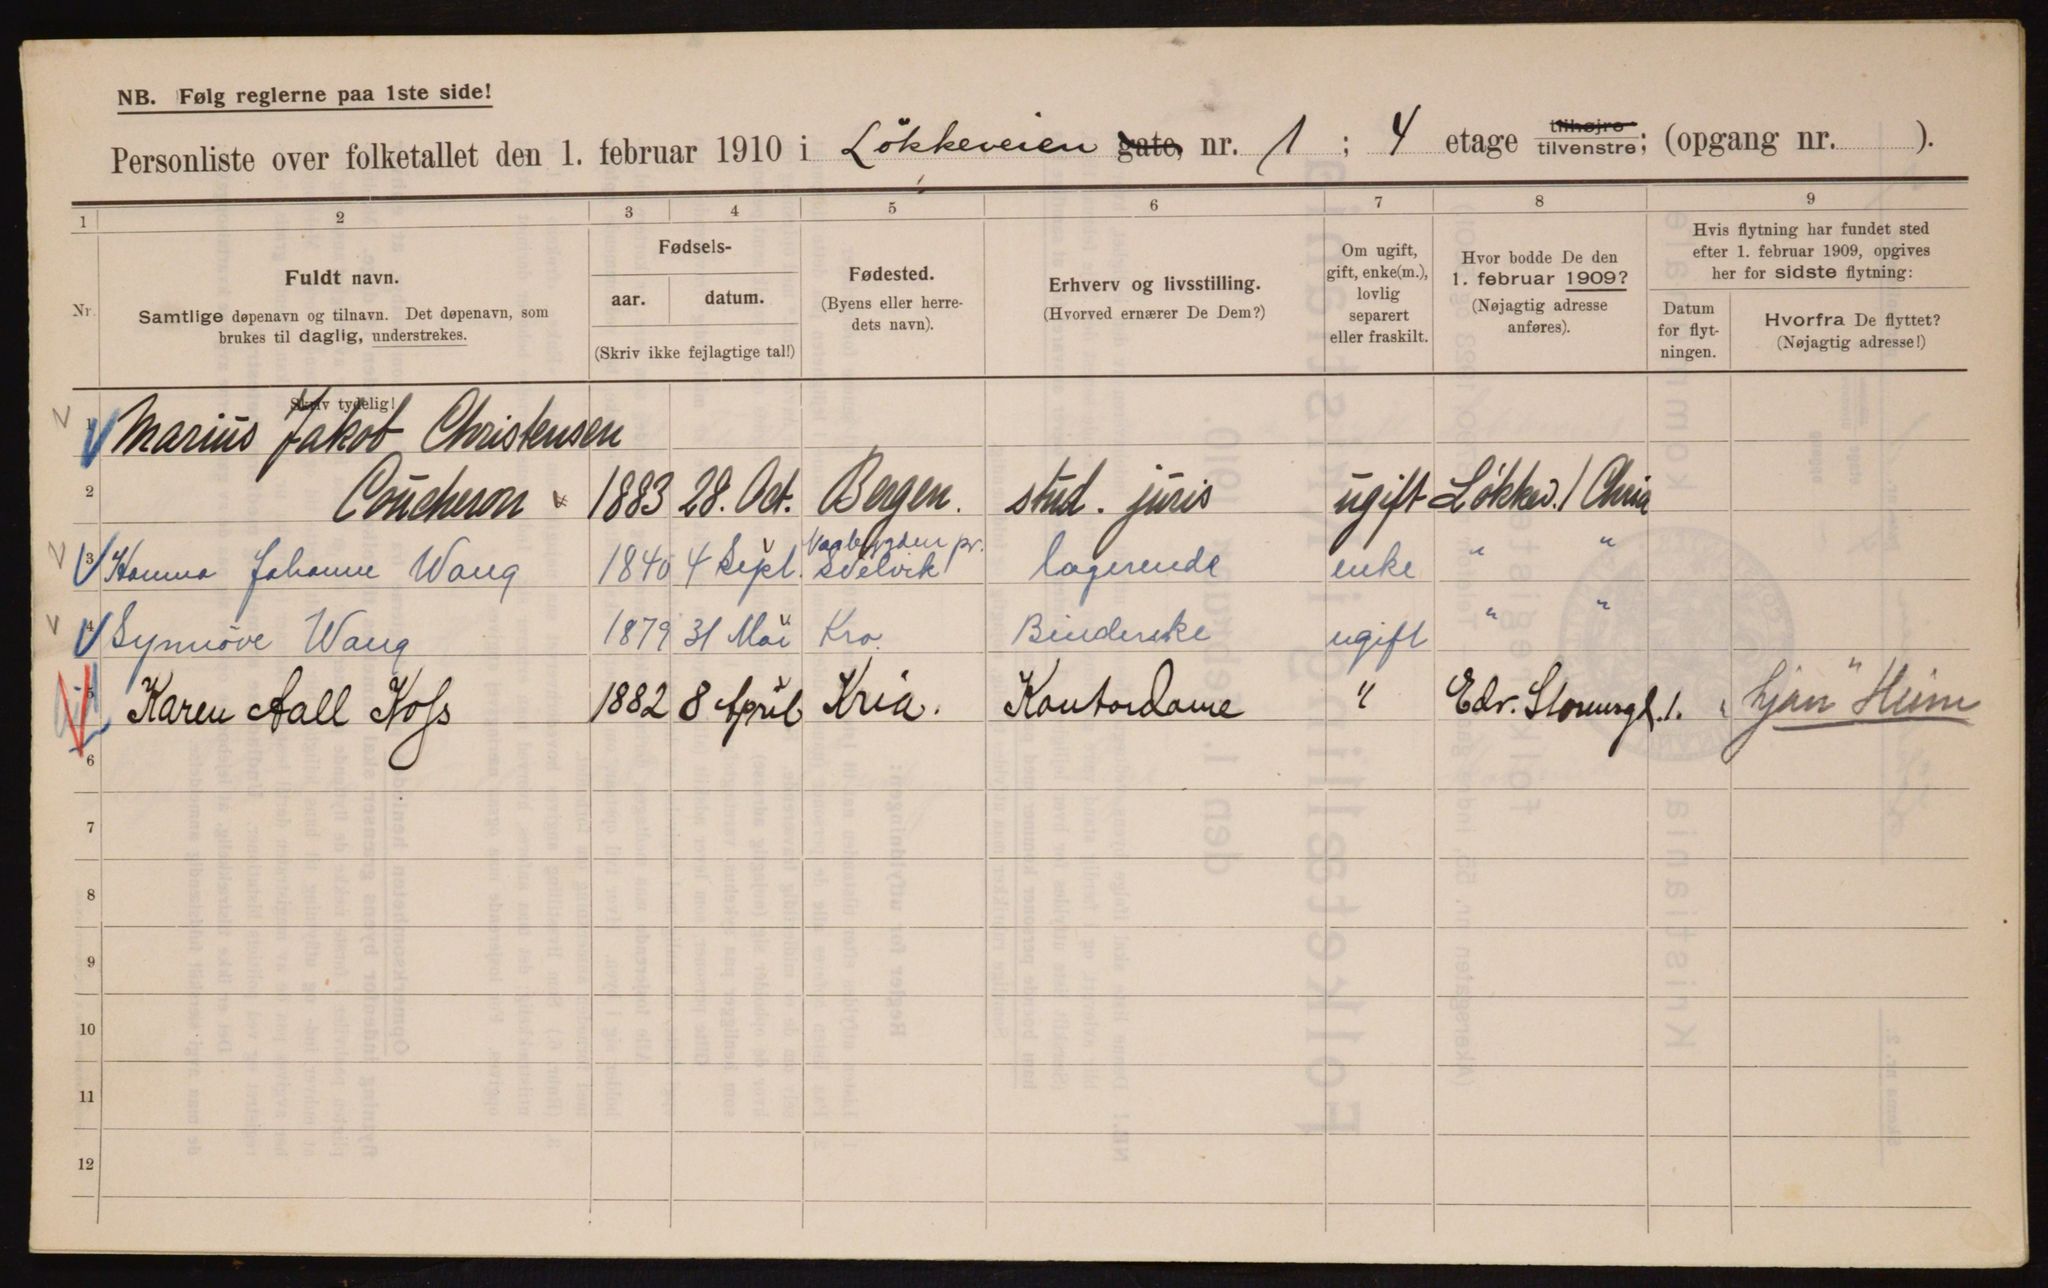 NB. Følg reglerne paa 1ste side!
Personliste over folketallet den 1. februar 1910 i Lökkeveien gate, nr. 1 ; 4 etage tilhøjre tilvenstre; (opgang nr. ).
1 2 3 4 5 6 7 8 9
Nr.
Fuldt navn.
Samtlige døpenavn og tilnavn. Det døpenavn, som
brukes til daglig, understrekes.
Skriv tydelig!
Fødsels-
aar. datum.
(Skriv ikke fejlagtige tal!)
Fødested.
(Byens eller herre-
dets navn).
Erhverv og livsstilling.
(Hvorved ernærer De Dem?)
Om ugift,
gift, enke(m.),
lovlig
separert
eller fraskilt.
Hvor bodde De den
1. februar 1909?
(Nøjagtig adresse
anføres).
Hvis flytning har fundet sted
efter 1. februar 1909, opgives
her for sidste flytning:
Datum
for flyt-
ningen.
Hvorfra De flyttet?
(Nøjagtig adresse!)
1 Marius Jakob Christensen
2 Coucheron 1883 28. Oct. Bergen. stud. juris ugift Lökkev. 1 Chria
3 Hanna Johanne Wang 1840 4 Sept. Svelvik logerende enke " "
4 Synnöve Wang 1879 31 Mai Kra. Binderske ugift " "
5 Karen Aall Koss 1882 8 April Kria. Kontordame " Edv. Stormsgt. 1. "Ljan" Heim
6
7
8
9
10
11
12